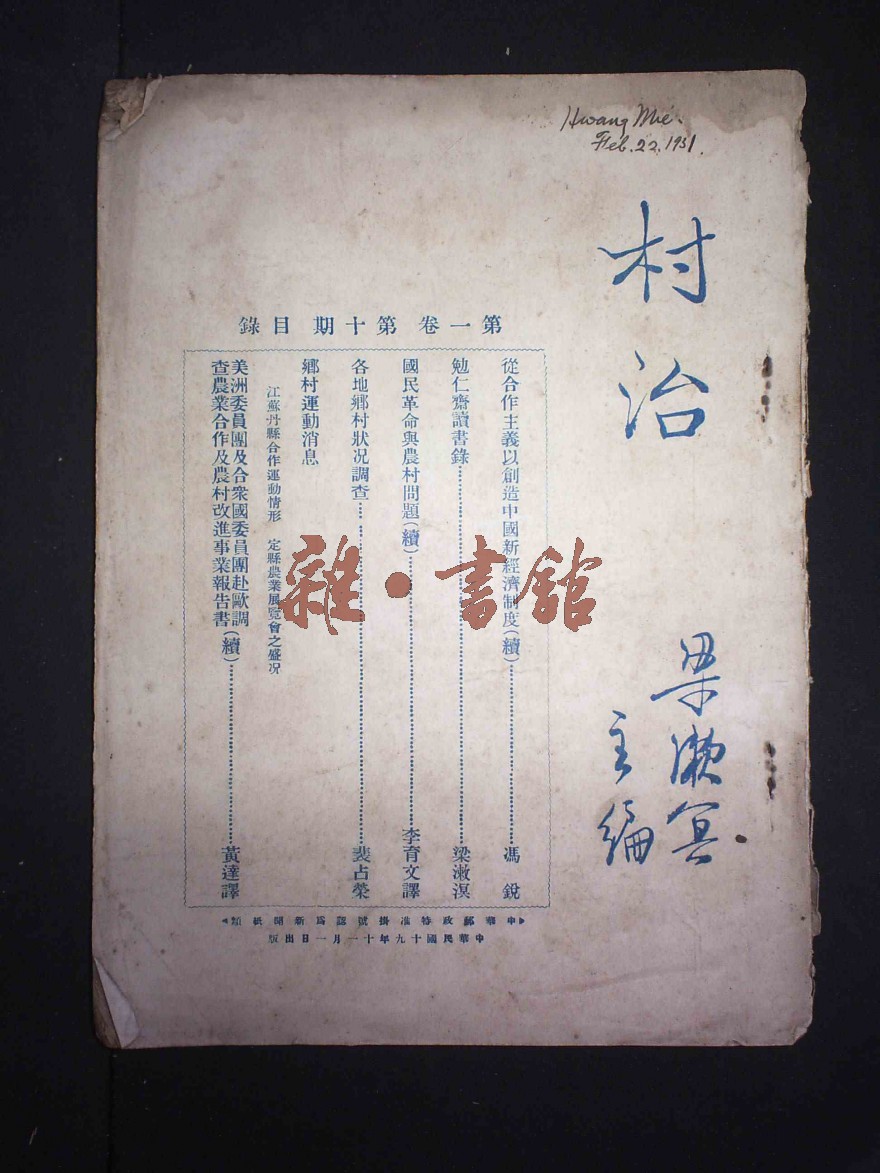 Hwang Mie.
Feb. 22, 1931.
村治
梁漱冥
主編
第一卷 第十期 目錄
從合作主義以創造中國新經濟制度(續)……馮銳
勉仁齋讀書錄……梁漱溟
國民革命與農村問題(續)……李育文譯
各地鄉村狀况調查……裴占榮
鄉村運動消息
江蘇丹縣合作運動情形 定縣農業展覽會之盛况
美洲委員團及合衆國委員團赴歐調
查農業合作及農村改進事業報告書(續)……黃達譯
中華郵政特准掛號認爲新聞紙類
中華民國十九年十一月一日出版
雜·書館